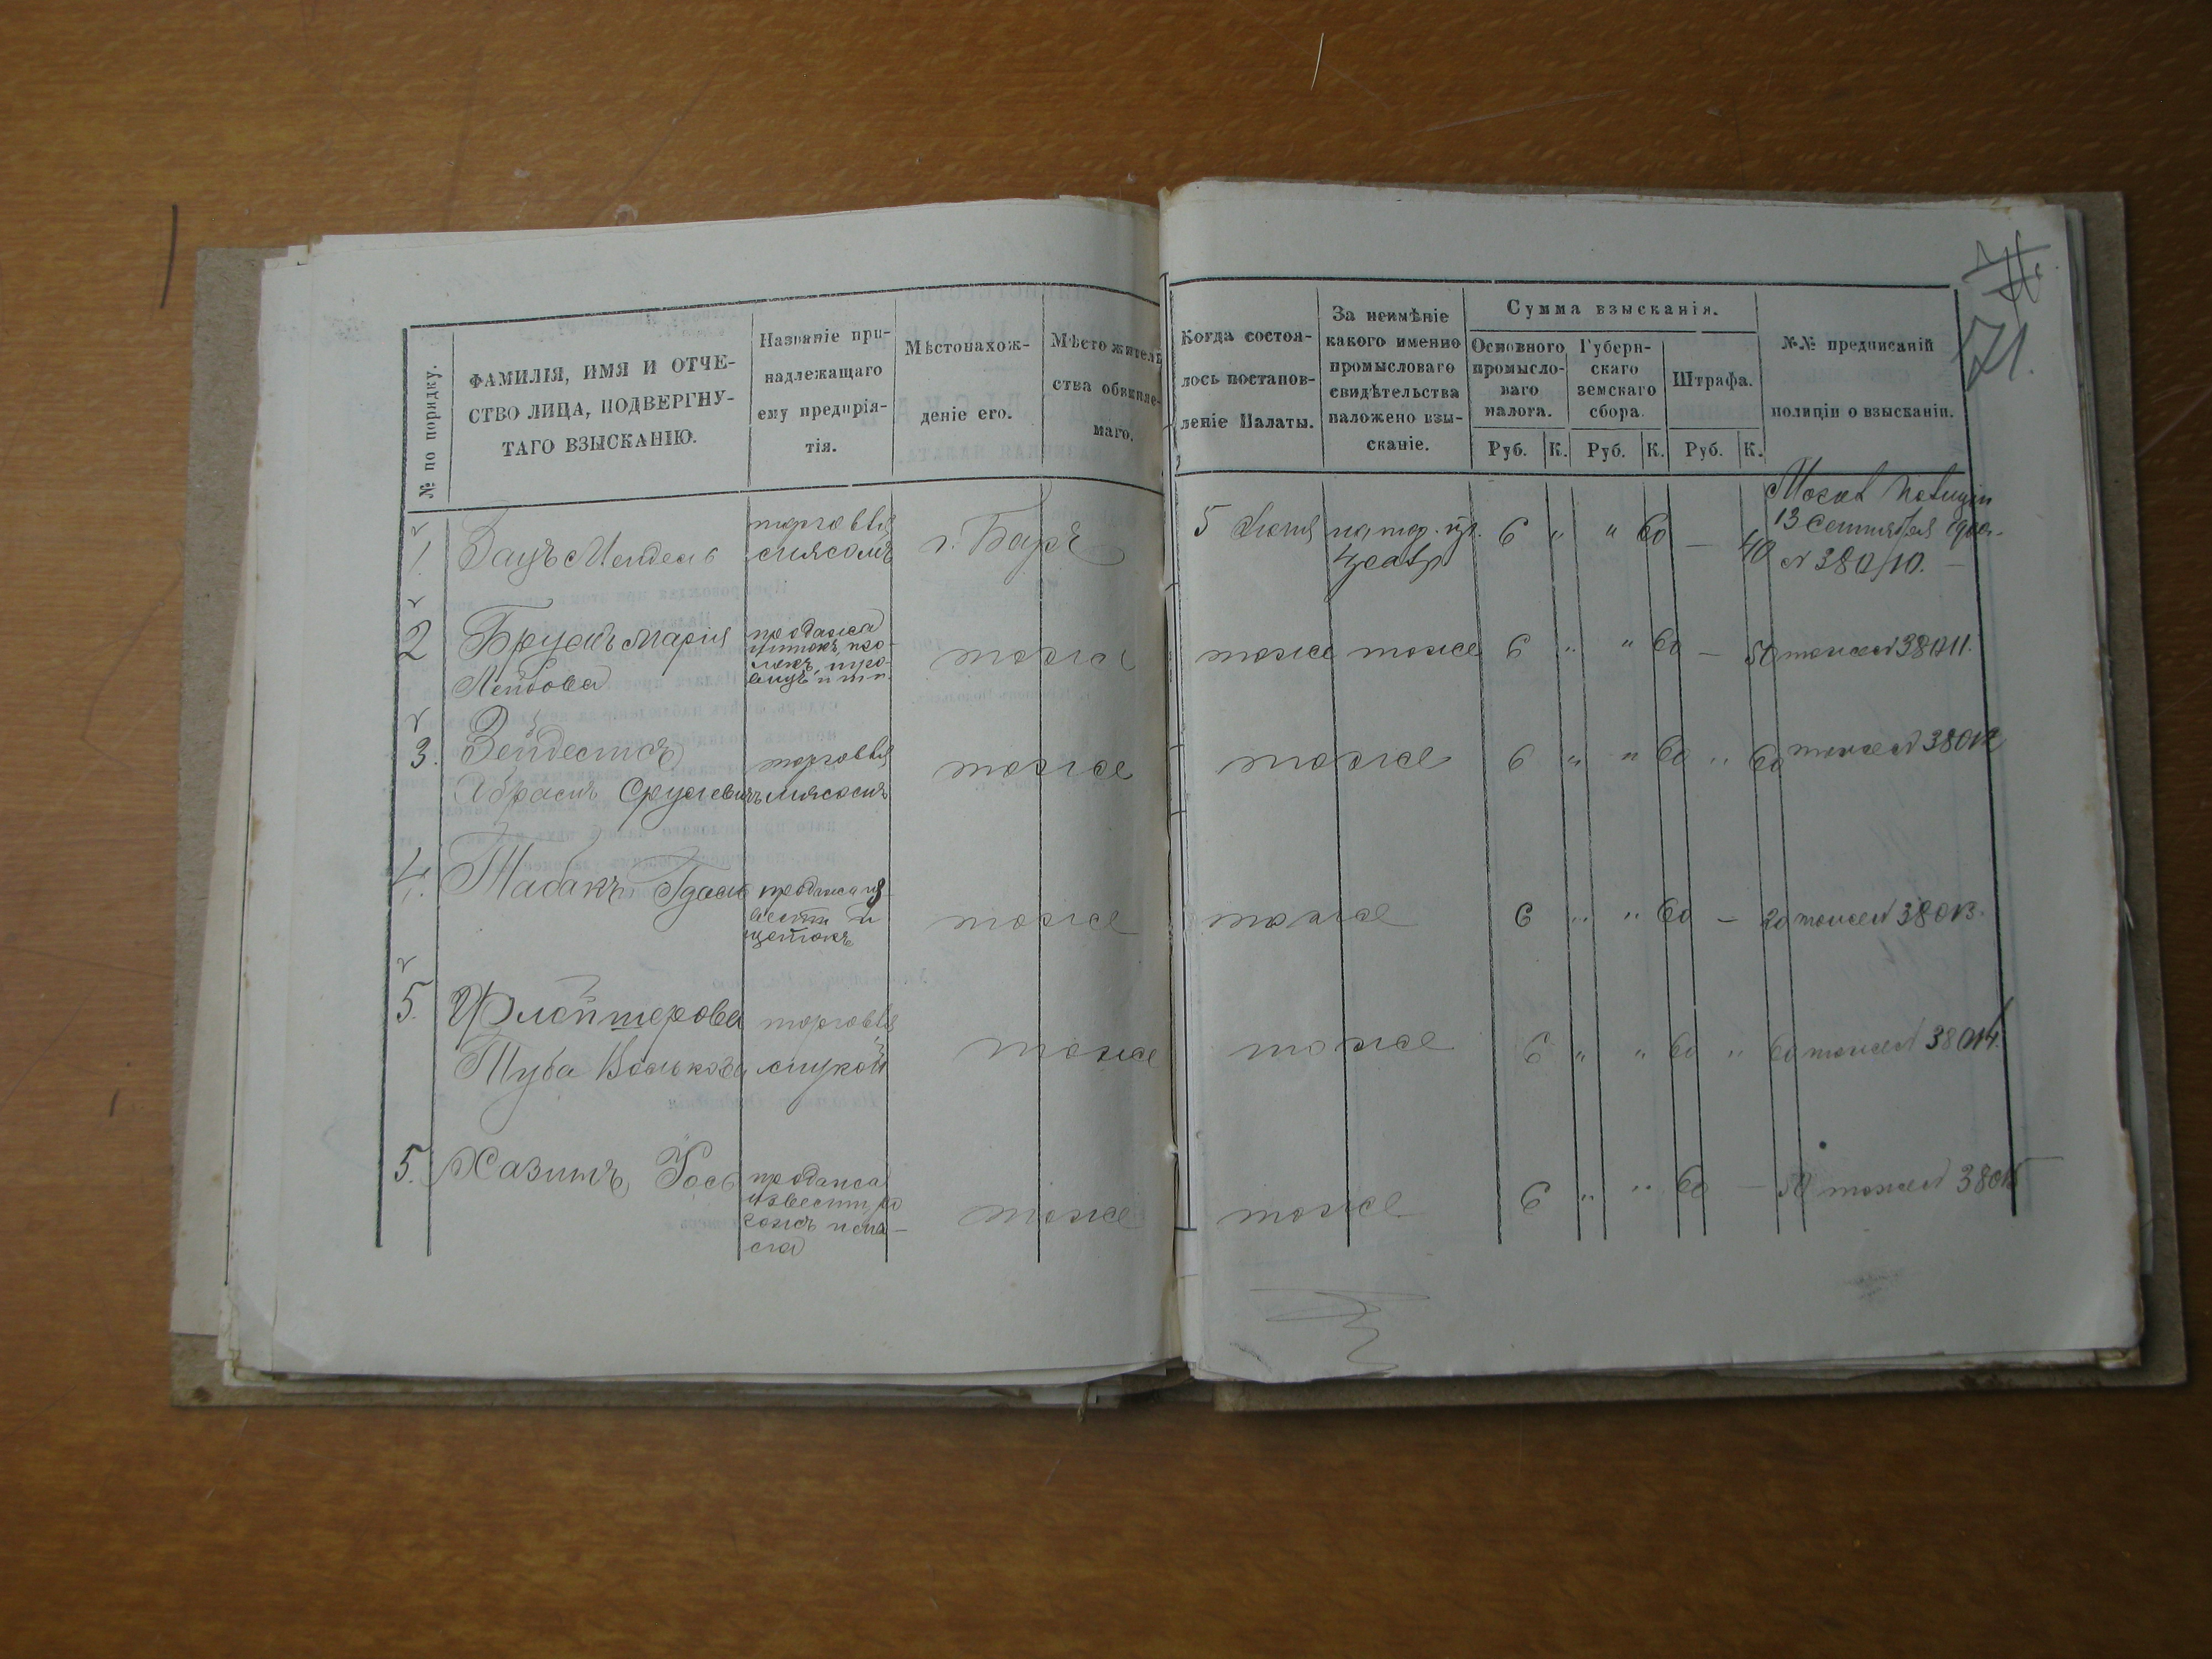 № по порядку.
ФАМИЛІЯ, ИМЯ И ОТЧЕ-
СТВО ЛИЦА, ПОДВЕРГНУ-
ТАГО ВЗЫСКАНІЮ.
Названіе при-
надлежащаго
ему предпрія-
тія.
Мѣстонахож-
деніе его.
Мѣсто житель
ства обвиняе-
маго.
Когда состоя-
лось постанов-
леніе Палаты.
За неимѣніе
какого именно
промысловаго
свидѣтельства
наложено взы-
сканіе.
Сумма взысканія.
Основного
промысло-
ваго
налога.
Губерн-
скаго
земскаго
сбора.
Штрафа.
Руб. К. Руб. К. Руб. К.
№№ предписаній
полиціи о взысканіи.
71.
1. Зацъ Мендель
торговля
мясомъ
г. Баръ
5 Іюня
6 " " 60 — 40
13 Сентября
№ 38010. —
2 Мария
Лейбова
продажа
тоже тоже 6 " " 60 — 50 тоже № 38011.
3. Зейдеманъ
Абрамъ Сруліевичъ
торговля
мясомъ
тоже
тоже
6 " " 60 " 60 тоже № 38012
4. Табакъ
продажа из-
вести и
щетокъ
тоже
тоже
6 " " 60 — 20 тоже № 38013.
5. Флейшерова
Туба Волькова
торговля
мукой
тоже
тоже
6 " " 60 " 60 тоже № 38014.
5. Хазинъ Іось
продажа
извести
тоже
тоже
6 " " 60 — 50 тоже № 38015